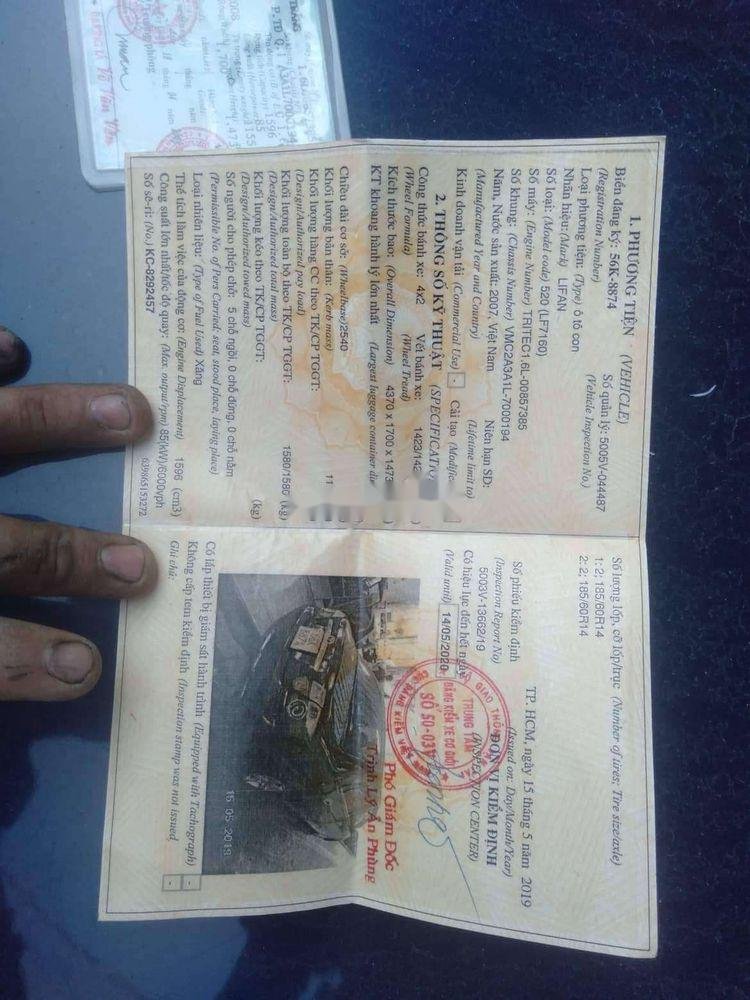 1. PHƯƠNG TIỆN (VEHICLE)
Biển đăng ký: 56K-8874
(Registration Number)
Số quản lý: 5005V-044487
(Vehicle Inspection No.)
Loại phương tiện: (Type) ô tô con
Nhãn hiệu: (Mark) LIFAN
Số loại: (Model code) 520 (LF7160)
Số máy: (Engine Number) TRITEC1.6L-00857385
Số khung: (Chassis Number) VMC2A3A1L-7000194
Năm, Nước sản xuất: 2007, Việt Nam
(Manufactured Year and Country)
Niên hạn SD:
(Lifetime limit to)
Kinh doanh vận tải (Commercial Use) - Cải tạo
2. THÔNG SỐ KỸ THUẬT
Công thức bánh xe: 4x2
(Wheel Formula)
Vết bánh xe:
(Wheel Tread)
Kích thước bao: (Overall Dimension) 4370 x 1700 x 1473
KT khoang hành lý lớn nhất (Largest luggage container
Chiều dài cơ sở: (Wheelbase)2540
Khối lượng bản thân: (Kerb mass)
Khối lượng hàng CC theo TK/CP TGGT:
(Design/Authorized pay load)
Khối lượng toàn bộ theo TK/CP TGGT: 1580/1580 (kg)
(Design/Authorized total mass)
Khối lượng kéo theo TK/CP TGGT: (kg)
(Design/Authorized towed mass)
Số người cho phép chở: 5 chỗ ngồi, 0 chỗ đứng, 0 chỗ nằm
(Permissible No. of Pers Carried: seat, stood place, laying place)
Loại nhiên liệu: (Type of Fuel Used) Xăng
Thể tích làm việc của động cơ: (Engine Displacement) 1596 (cm3)
Công suất lớn nhất/tốc độ quay: (Max. output/rpm) 85(kW)/6000vph
Số sê-ri: (No.) KC-8292457
639865153272
Số lượng lốp, cỡ lốp/trục (Number of tires; Tire size/axle)
1: 2; 185/60R14
2: 2; 185/60R14
TP. HCM, ngày 15 tháng 5 năm 2019
(Issued on: Day/Month/Year)
Số phiếu kiểm định
(Inspection Report No)
5003V-13662/19
Có hiệu lực đến hết ngày
(Valid until) 14/05/2020
ĐƠN VỊ KIỂM ĐỊNH
(INSPECTION CENTER)
TRUNG TÂM
ĐĂNG KIỂM XE CƠ GIỚI
SỐ 50-03V
Phó Giám Đốc
Trịnh Lý Ân Phùng
15 05 2019
Có lắp thiết bị giám sát hành trình (Equipped with Tachograph) -
Không cấp tem kiểm định (Inspection stamp was not issued) -
Ghi chú: